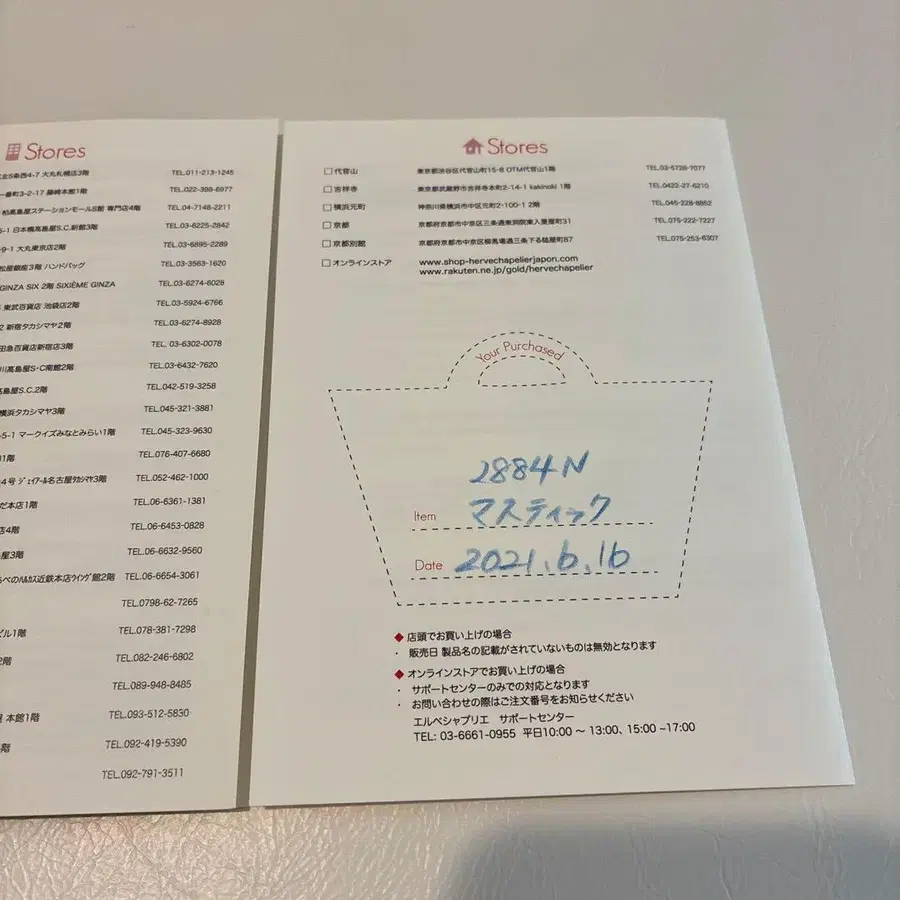 Stores
北5条西4-7 大丸札幌店3階 TEL.011-213-1245
一番町3-2-17 藤崎本館1階 TEL.022-398-6977
柏髙島屋ステーションモールS館 専門店4階 TEL.04-7148-2211
5-1 日本橋髙島屋S.C.新館3階 TEL.03-6225-2842
-9-1 大丸東京店2階 TEL.03-6895-2289
松屋銀座3階 ハンドバッグ TEL.03-3563-1620
GINZA SIX 2階 SIXIÈME GINZA TEL.03-6274-6028
東武百貨店 池袋店2階 TEL.03-5924-6766
2 新宿タカシマヤ2階 TEL.03-6274-8928
田急百貨店新宿店3階 TEL. 03-6302-0078
川髙島屋S・C南館2階 TEL.03-6432-7620
髙島屋S.C.2階 TEL.042-519-3258
横浜タカシマヤ3階 TEL.045-321-3881
-5-1 マークイズみなとみらい1階 TEL.045-323-9630
1階 TEL.076-407-6680
4号 ジェイアール名古屋タカシマヤ3階 TEL.052-462-1000
だ本店1階 TEL.06-6361-1381
店4階 TEL.06-6453-0828
屋3階 TEL.06-6632-9560
べのハルカス近鉄本店ウイング館2階 TEL.06-6654-3061
TEL.0798-62-7265
ビル1階 TEL.078-381-7298
2階 TEL.082-246-6802
TEL.089-948-8485
本館1階 TEL.093-512-5830
階 TEL.092-419-5390
TEL.092-791-3511
Stores
□ 代官山 東京都渋谷区代官山町15-8 OTM代官山1階 TEL.03-5728-7077
□ 吉祥寺 東京都武蔵野市吉祥寺本町2-14-1 kakinoki 1階 TEL.0422-27-6210
□ 横浜元町 神奈川県横浜市中区元町2-100-1 2階 TEL.045-228-8862
□ 京都 京都府京都市中京区三条通東洞院東入菱屋町31 TEL.075-222-7227
□ 京都別館 京都府京都市中京区柳馬場通三条下る槌屋町87 TEL.075-253-6307
□ オンラインストア www.shop-hervechapelierjapon.com
www.rakuten.ne.jp/gold/hervechapelier
Your Purchased
2884N
Item マスティック
Date 2021.6.16
◆ 店頭でお買い上げの場合
・ 販売日 製品名の記載がされていないものは無効となります
◆ オンラインストアでお買い上げの場合
・ サポートセンターのみでの対応となります
・ お問い合わせの際はご注文番号をお知らせください
エルベシャプリエ サポートセンター
TEL: 03-6661-0955 平日10:00 ～ 13:00、15:00 ~17:00